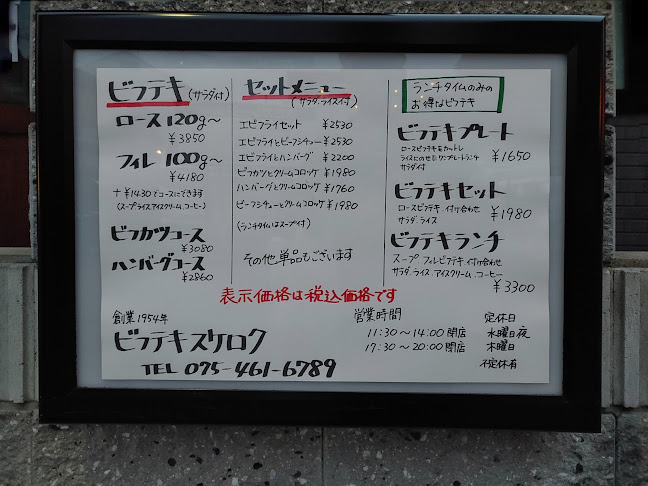 ビフテキ(サラダ付)
ロース120g～
¥3850
フィレ100g～
¥4180
+¥1430でコースにできます
(スープ.ライス.アイスクリーム.コーヒー)
ビフカツコース
¥3080
ハンバーグコース
¥2860
セットメニュー
(サラダ.ライス付)
エビフライセット ¥2530
エビフライとビーフシチュー ¥2530
エビフライとハンバーグ ¥2200
ビフカツとクリームコロッケ ¥1980
ハンバーグとクリームコロッケ ¥1760
ビーフシチューとクリームコロッケ ¥1980
(ランチタイムはスープ付)
その他単品もございます
ランチタイムのみの
お得なビフテキ
ビフテキプレート
ロースビフテキをカットし
ライスにのせたワンプレートランチ
サラダ付
¥1650
ビフテキセット
ロースビフテキ.付け合わせ
サラダ.ライス
¥1980
ビフテキランチ
スープ フィレビフテキ.付け合わせ
サラダ.ライス.アイスクリーム.コーヒー
¥3300
表示価格は税込価格です
創業1954年
ビフテキスケロク
TEL 075-461-6789
営業時間
11:30～14:00閉店
17:30～20:00閉店
定休日
水曜日夜
木曜日
不定休有